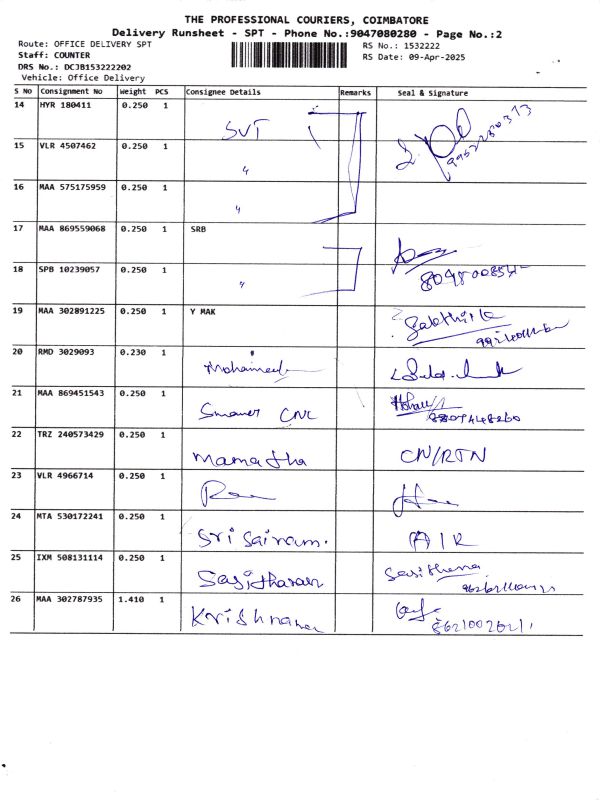 THE PROFESSIONAL COURIERS, COIMBATORE
Delivery Runsheet - SPT - Phone No.:9047080280 - Page No.:2
Route: OFFICE DELIVERY SPT
RS No.: 1532222
Staff: COUNTER
RS Date: 09-Apr-2025
DRS No.: DCJB153222202
Vehicle: Office Delivery
S NO Consignment No Weight PCS Consignee Details Remarks Seal & Signature
14 HYR 180411 0.250 1 SVT
9952280373
15 VLR 4507462 0.250 1 "
16 MAA 575175959 0.250 1 "
17 MAA 869559068 0.250 1 SRB
18 SPB 10239057 0.250 1 "
19 MAA 302891225 0.250 1 Y MAK Sakthi
20 RMD 3029093 0.230 1 Mohamed
21 MAA 869451543 0.250 1 CNC
22 TRZ 240573429 0.250 1 Mamatha CN/RTN
23 VLR 4966714 0.250 1
24 MTA 530172241 0.250 1 Sri Sairam. AIR
25 IXM 508131114 0.250 1 Sasitharan
26 MAA 302787935 1.410 1 Krishnaven